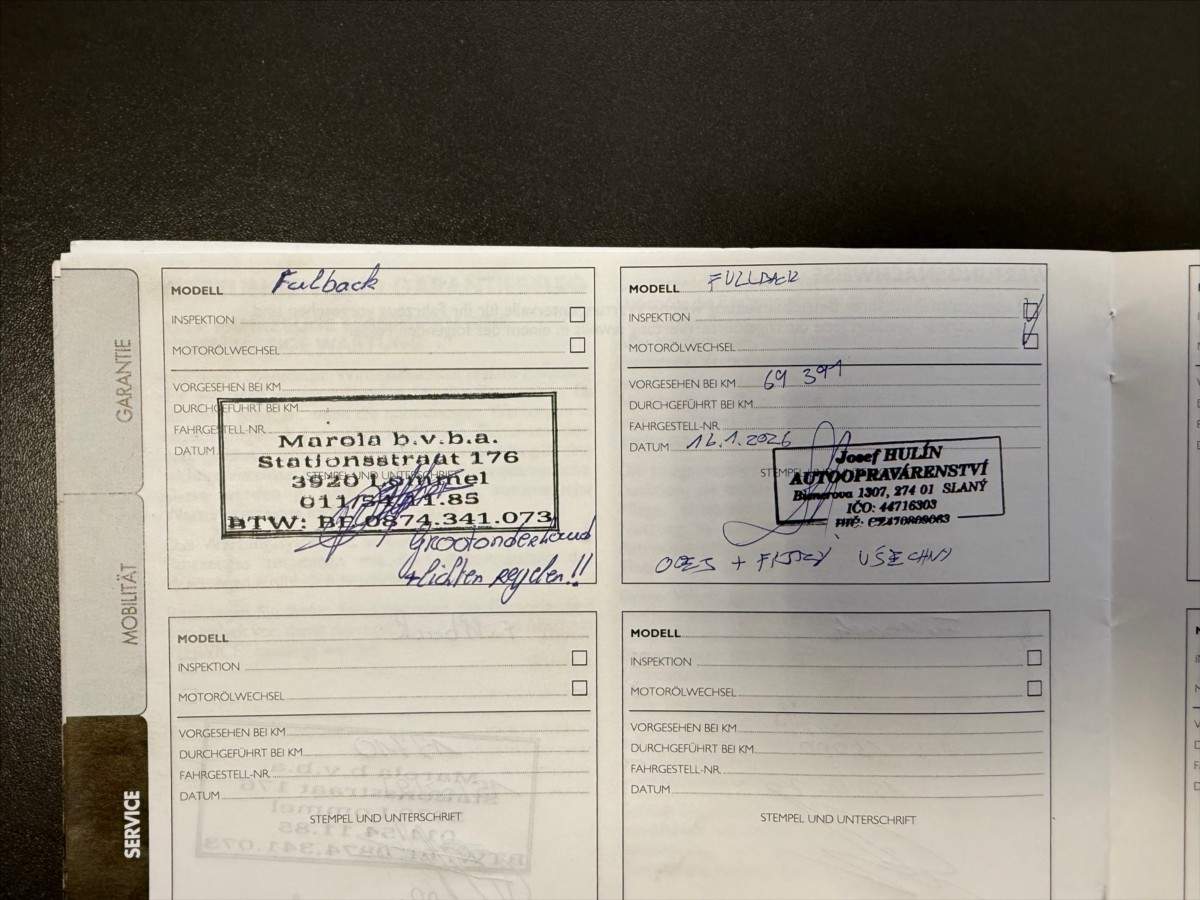 GARANTIE
MOBILITÄT
SERVICE
MODELL Fulback
INSPEKTION
MOTORÖLWECHSEL
VORGESEHEN BEI KM
DURCHGEFÜHRT BEI KM
FAHRGESTELL-NR.
DATUM
STEMPEL UND UNTERSCHRIFT
Marola b.v.b.a.
Stationsstraat 176
3920 Lommel
011/54.11.85
BTW: BE 0874.341.073
Grootonderhoud
+lichten regelen!!
MODELL FULLBACK
INSPEKTION
MOTORÖLWECHSEL
VORGESEHEN BEI KM 69 391
DURCHGEFÜHRT BEI KM
FAHRGESTELL-NR.
DATUM 16.1.2026
Josef HULÍN
AUTOOPRAVÁRENSTVÍ
1307, 274 01 SLANÝ
IČO: 44716303
OLEJ + FILTRY VŠECHNY
MODELL
INSPEKTION
MOTORÖLWECHSEL
VORGESEHEN BEI KM
DURCHGEFÜHRT BEI KM
FAHRGESTELL-NR.
DATUM
STEMPEL UND UNTERSCHRIFT
MODELL
INSPEKTION
MOTORÖLWECHSEL
VORGESEHEN BEI KM
DURCHGEFÜHRT BEI KM
FAHRGESTELL-NR.
DATUM
STEMPEL UND UNTERSCHRIFT